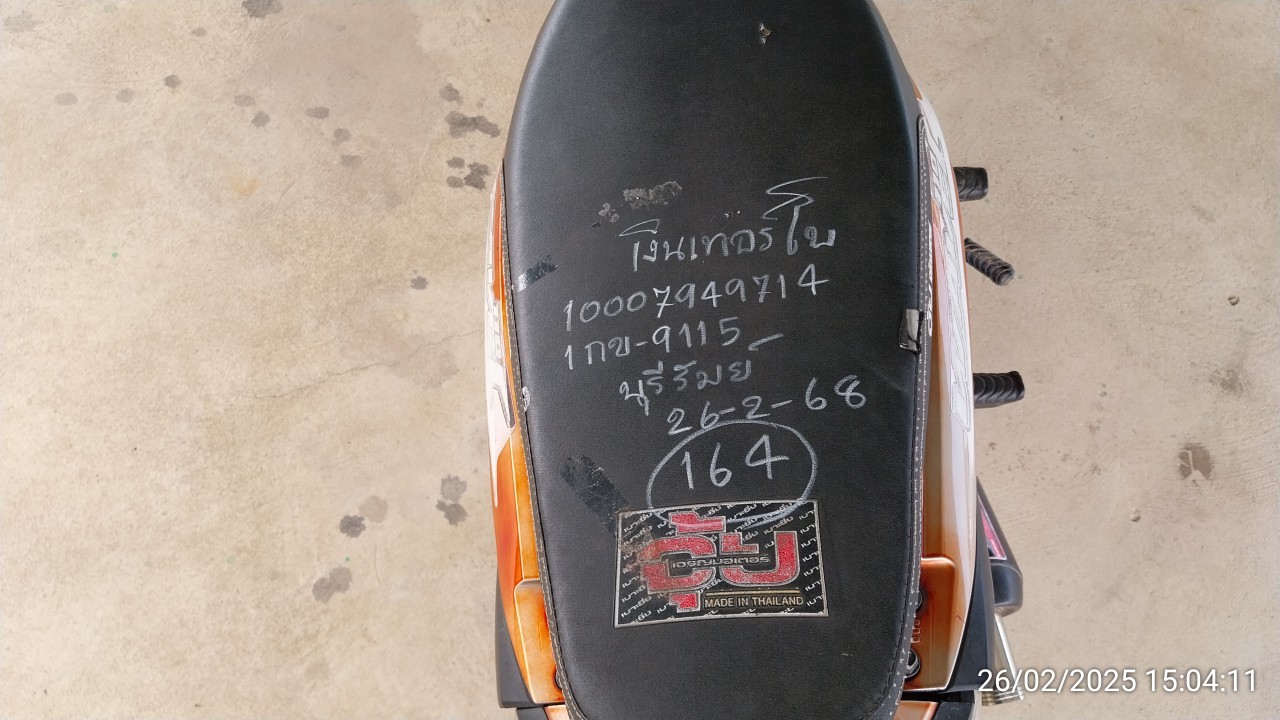 เงินเทอร์โบ
10007949714
1กข-9115
บุรีรัมย์
26-2-68
164
MADE IN THAILAND
26/02/2025 15:04:11